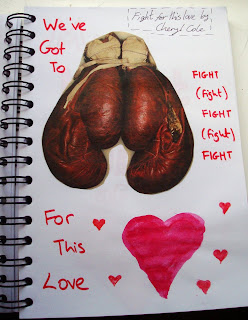 Fight for this love by
Cheryl Cole
We've
Got
To
FIGHT
(fight)
FIGHT
(fight)
FIGHT
For
This
Love